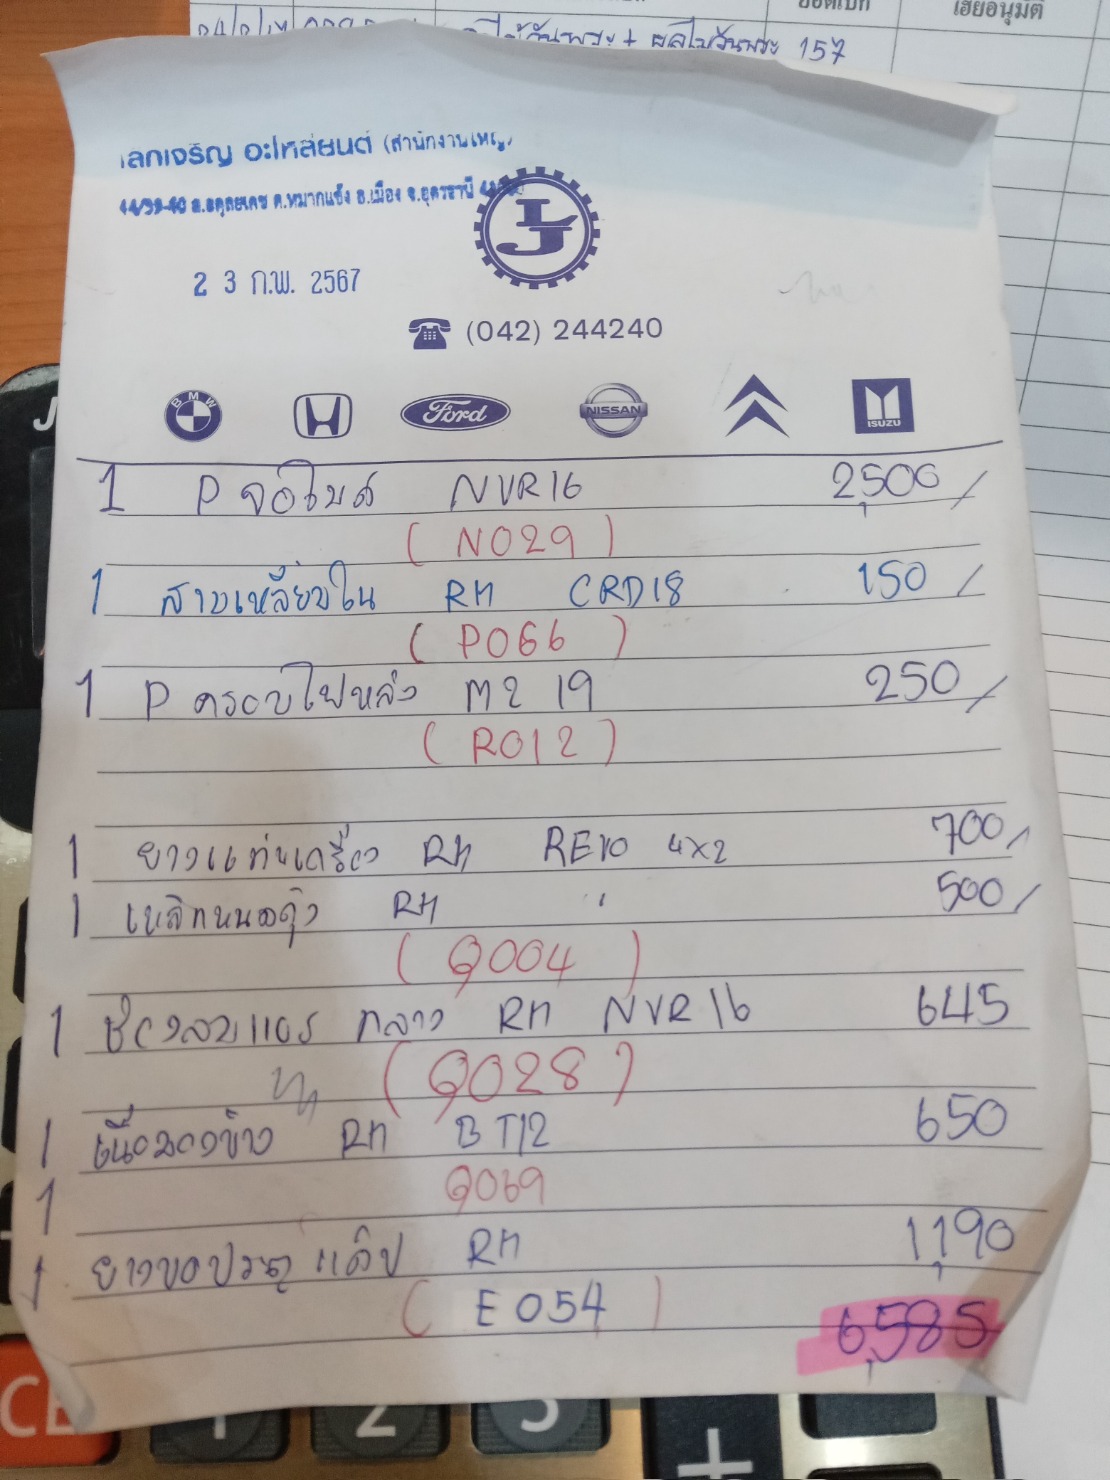 ยอดเบิก เฮียอนุมัติ
ผลไม้วันพระ 157
เลกเจริญ อะไหล่ยนต์ (สำนักงานใหญ่)
44/39-40 ถ.อดุลยเดช ต.หมากแข้ง อ.เมือง จ.อุดรธานี
LJ
2 3 ก.พ. 2567
(042) 244240
BMW H Ford NISSAN ISUZU
1 P จอไมล์ NVR16 2,500
(N029)
1 สามเหลี่ยมใน RH CRD18 150
(P066)
1 P ครอบไฟหลัง M2 19 250
(R012)
1 ยางแท่นเครื่อง RH REVO 4x2 700
1 RH " 500
(Q004)
1 กลาง RH NVR16 645
(Q028)
1 RH BT12 650
1 Q069
1 ยางขอบประตู แค๊ป RH 1,190
(E054)
6,585
CE 1 2 3 +